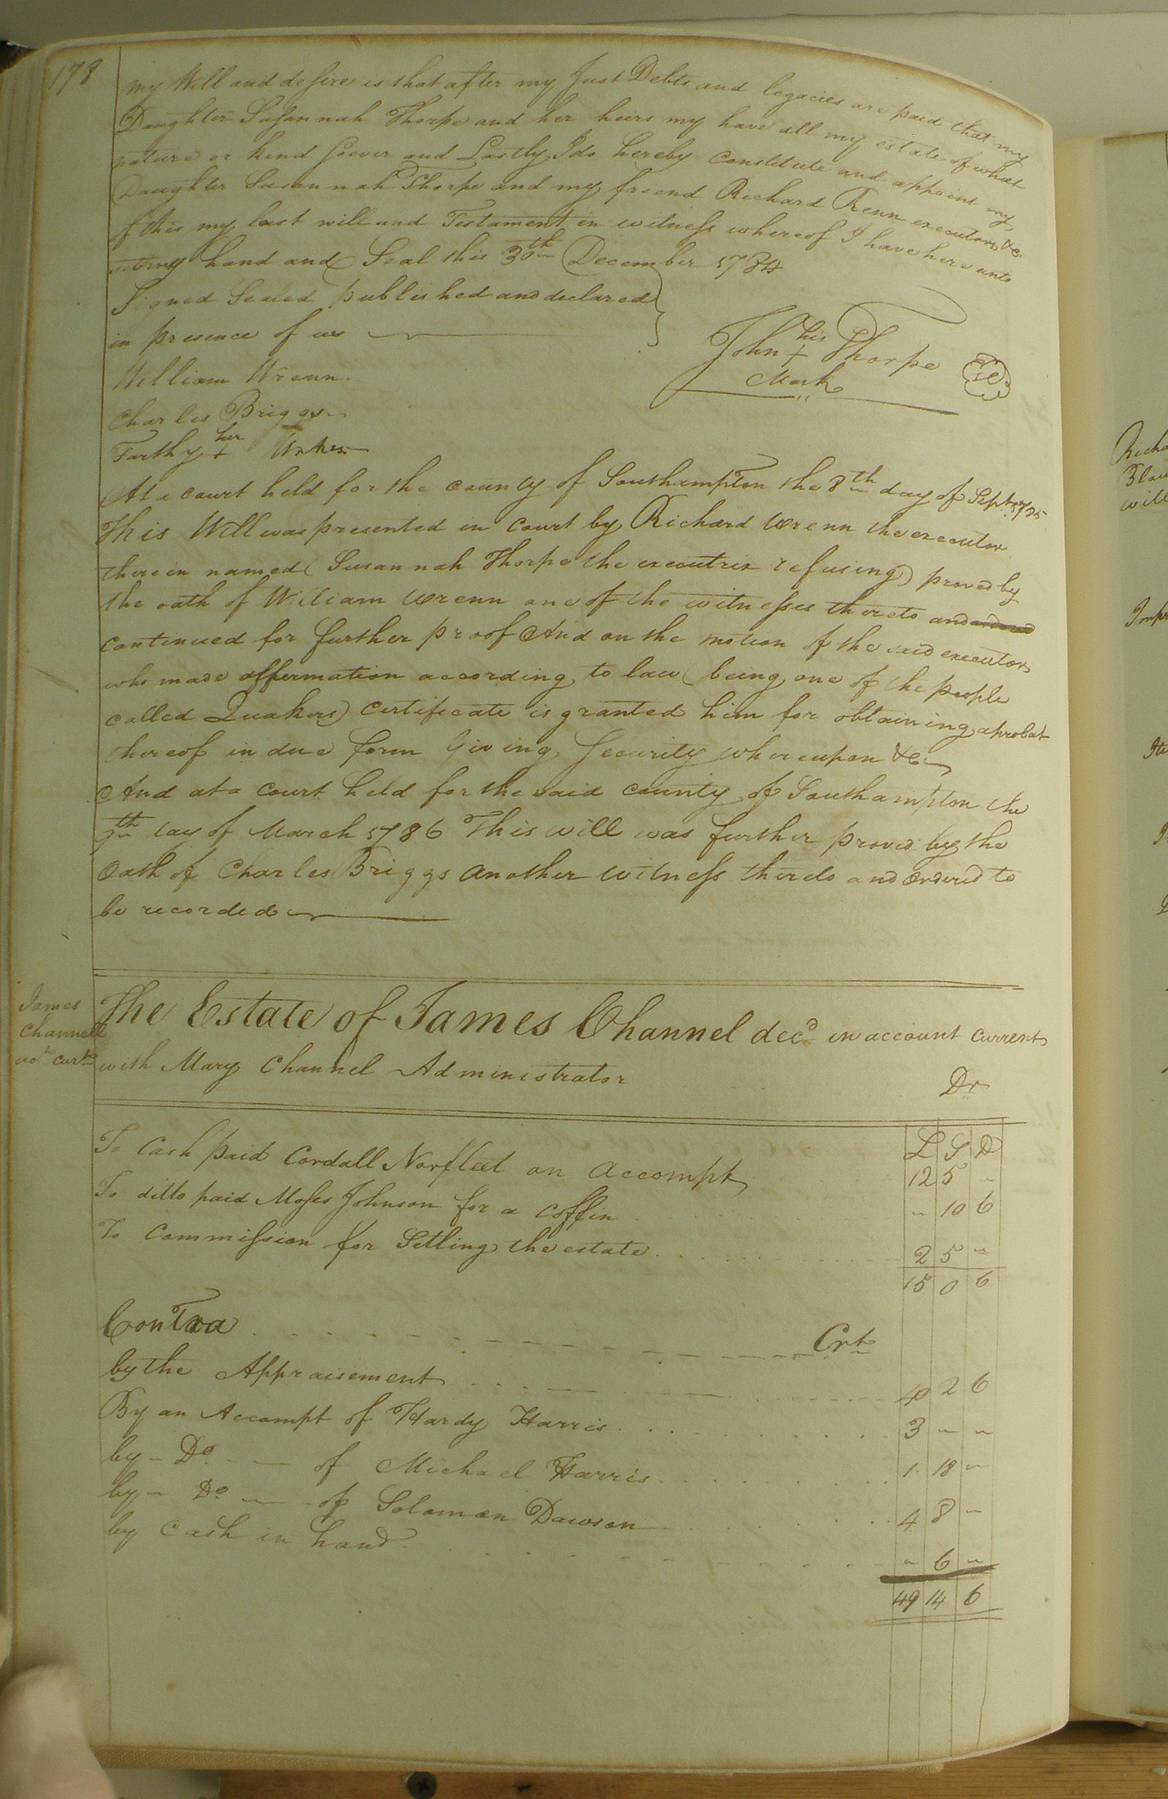 178
my Will and desire is that after my Just Debts and legacies are paid that my
Daughter Susannah Thorpe and her heirs my have all my estate of what
nature or kend soever and Lastly I do hereby constitute and appoint my
Daughter Susannah Thorpe and my friend Richard Renn executors &c
of this my last will and Testament in witness whereof I have here unto
set my hand and Seal this 30th December 1784
Signed Sealed published and declared
in presence of us
John his + Thorpe
Mark
William Wrenn.
Charles Briggs
her
At a court held for the county of Southampton the 8th day of Septr 1785
This Will was presented in court by Richard Wrenn the executor
therein named (Susannah Thorpe the executrix refusing) proved by
the oath of William Wrenn one of the witnesses thereto and
continued for further proof And on the motion of the said executor
who made affermation according to law (being one of the people
called Quakers) certificate is granted him for obtaining a probat
thereof in due form Giving Security whereupon &c
And at a court held for the said county of Southampton the
9th day of March 1786 This will was further proved by the
Oath of Charles Briggs another witness thereto and ordered to
be recorded
James
Channell
acct curt
The Estate of James Channel decd in account current
with Mary Channel Administrator
Dr
L S D
To Cash paid Cordall Norfleet on accompt 12 5 "
To ditto paid Moses Johnson for a coffin " 10 6
To Commission for Setling the estate 2 5 "
15 0 6
Contra Crt
by the Appraisement 40 2 6
By an Accompt of Hardy Harris 3 " "
by - Do - of Michael Harris 1 18 "
by - Do - of Soloman Dawson 4 8 "
by Cash in hand " 6 "
49 14 6